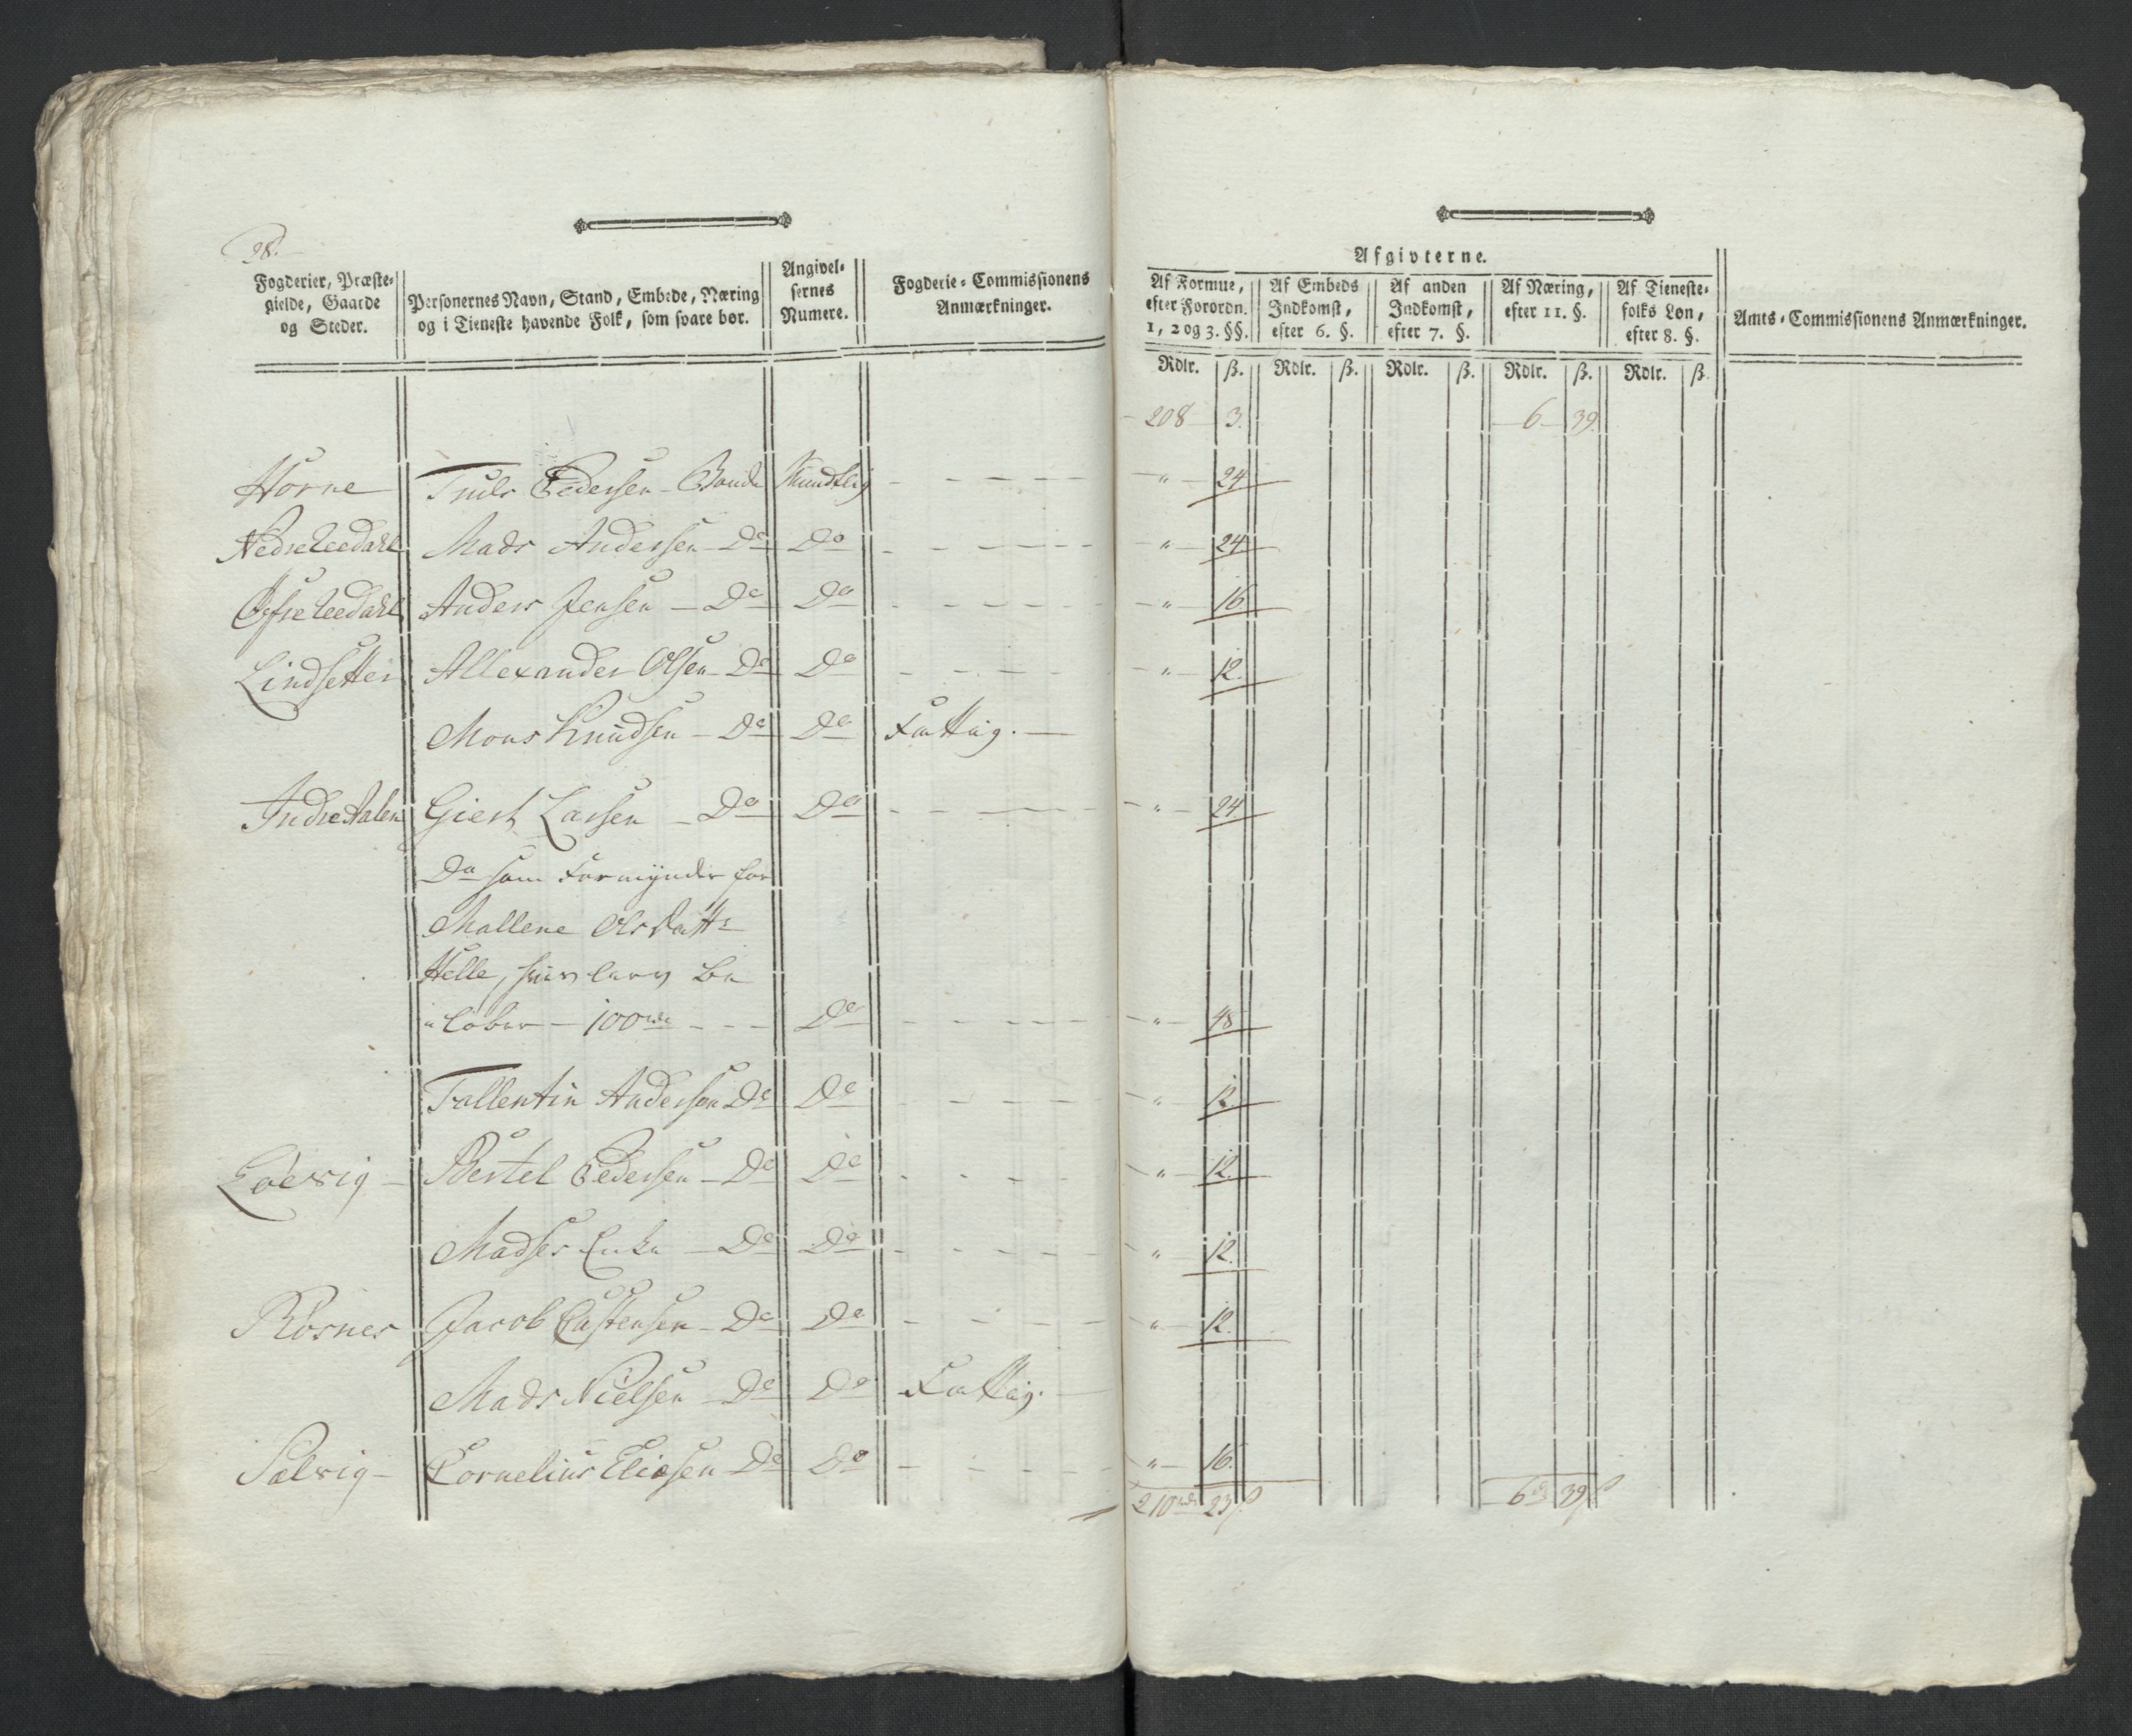 98.
Fogderier, Præste-
gielde, Gaarde
og Steder.
Personernes Navn, Stand, Embede, Næring
og i Tieneste havende Folk, som svare bør.
Angivel-
sernes
Numere.
Fogderie-Commissionens
Anmærkninger.
Afgivterne.
Af Formue,
efter Forordn.
1, 2 og 3. §§.
Af Embeds
Indkomst,
efter 6. §.
Af anden
Indkomst,
efter 7. §.
Af Næring,
efter 11. §.
Af Tieneste-
folks Løn,
efter 8. §.
Amts-Commissionens Anmærkninger.
Rdlr. ß. Rdlr. ß. Rdlr. ß. Rdlr. ß. Rdlr. ß.
208 3. 6 39.
Horne Truls Pedersen - Bonde Mundtlig - - - - " 24
Nedre Leedahl Mads Andersen - Do Do - - - - " 24
Øfre Leedahl Anders Jensen - Do Do - - - - " 16
Lindsetter Allexander Olsen - Do Do - - - - " 12.
Mons Knudsen - Do Do Fattig. -
Indre Aalen Giert Larsen - Do Do - - - - " 24
Do som Formynder for
Mallene Olsdattr
Helle, hvis Arv be
"løber - 100 rdr - - - Do - - - - " 48
Fallentin Andersen Do Do - - - - " 12.
Løevig - Bertel Pedersen - Do Do - - - - " 12.
Madses Enke - Do Do - - - - " 12.
Rosnes Jacob Castensen - Do Do - - - - " 12.
Mads Nielsen - Do Do Fattig. -
Sælvig - Cornelius Eliasen Do Do - - - - " 16.
210 rdr 23 ß 6 rd 39 ß